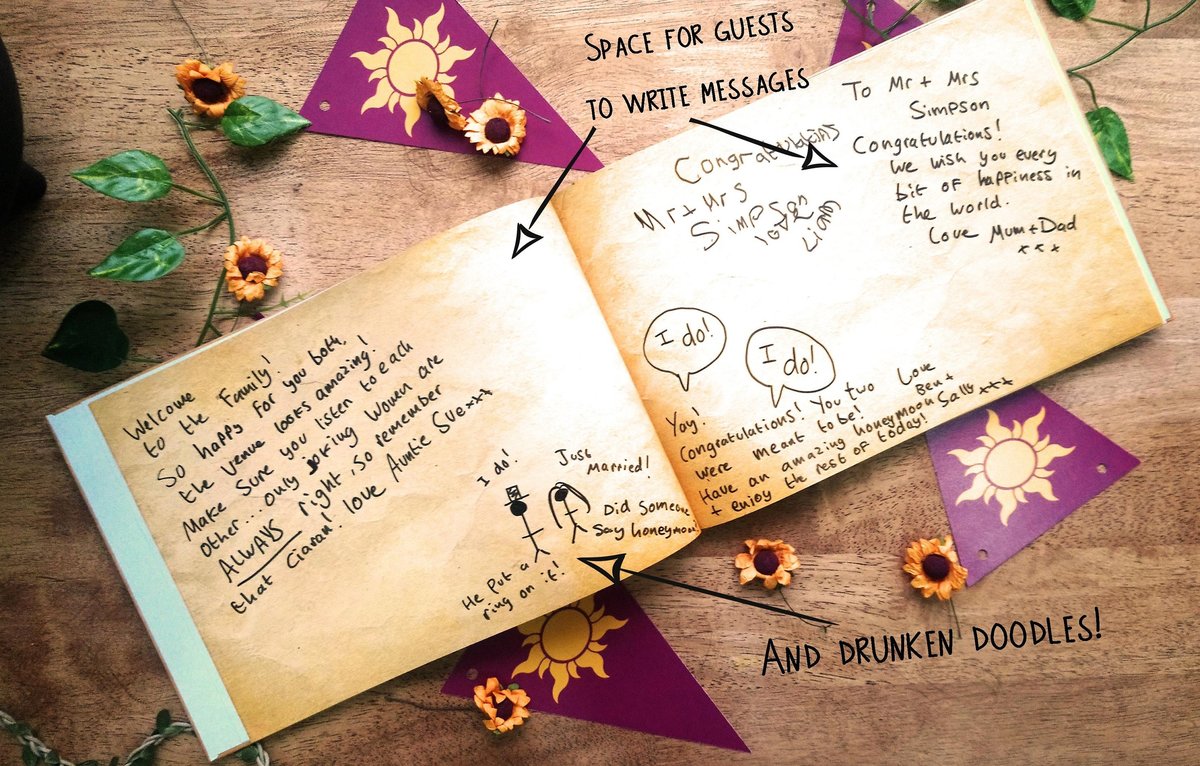 SPACE FOR GUESTS
TO WRITE MESSAGES
Welcome
to the Family!
So happy for you both,
the venue looks amazing!
Make sure you listen to each
other... only joking women are
ALWAYS right, so remember
that Ciaran! love Auntie Sue xxx
I do!
Just
Married!
Did Someone
Say honeymoon
He put a
ring on it!
Congratulations
Mr + Mrs
Simpson
love
Liam
To Mr + Mrs
Simpson
Congratulations!
We wish you every
bit of happiness in
the world.
Love Mum + Dad
x x x
I do!
I do!
Yay!
Congratulations! You two
were meant to be!
Have an amazing honeymoon
+ enjoy the rest of today!
Love
Ben +
Sally xxx
AND DRUNKEN DOODLES!